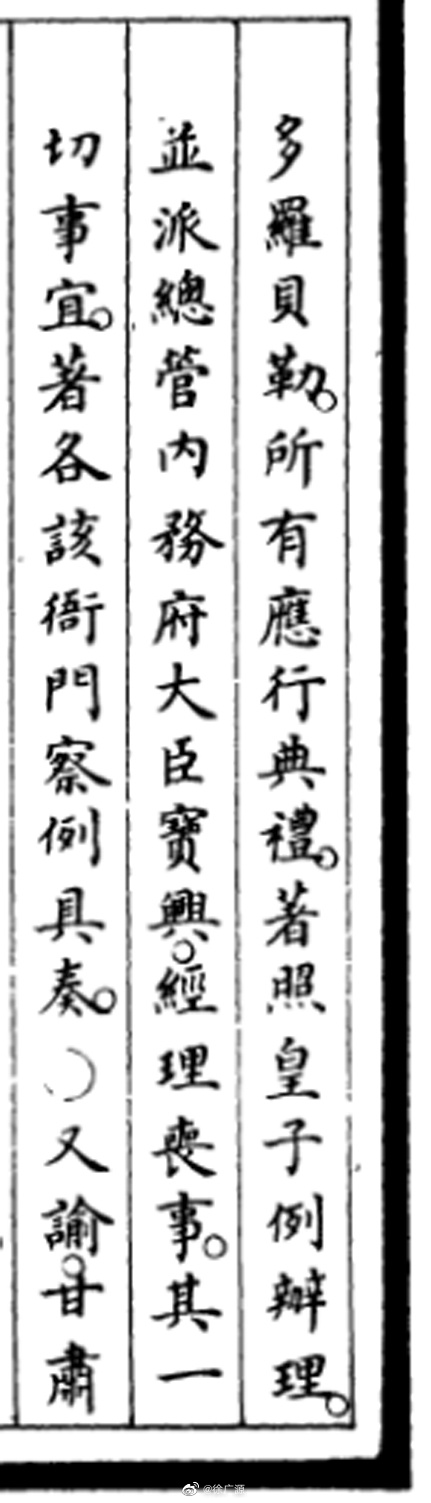 多羅貝勒。所有應行典禮。著照皇子例辦理。
並派總管內務府大臣寶興。經理喪事。其一
切事宜。著各該衙門察例具奏。○又諭。甘肅
@徐广源